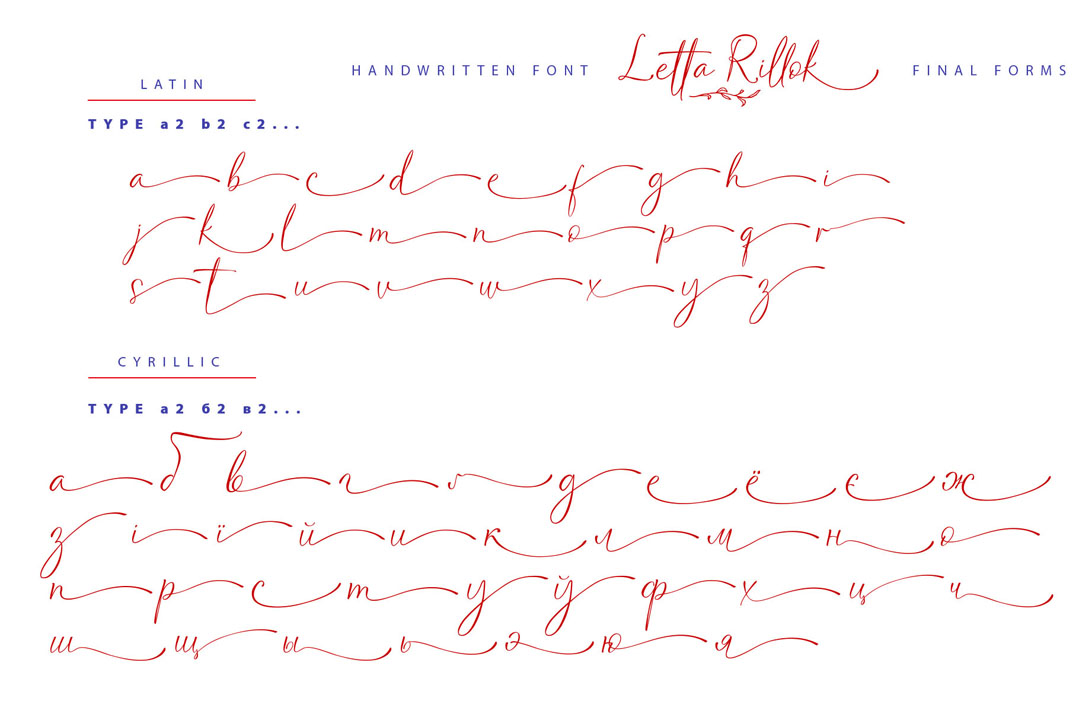 HANDWRITTEN FONT Letta Rillok FINAL FORMS
LATIN
TYPE a2 b2 c2...
a b c d e f g h i
j k l m n o p q r
s t u v w x y z
CYRILLIC
TYPE а2 б2 в2...
а б в г ґ д е ё є ж
з і ї й и к л м н о
п р с т у ў ф х ц ч
ш щ ы ь э ю я